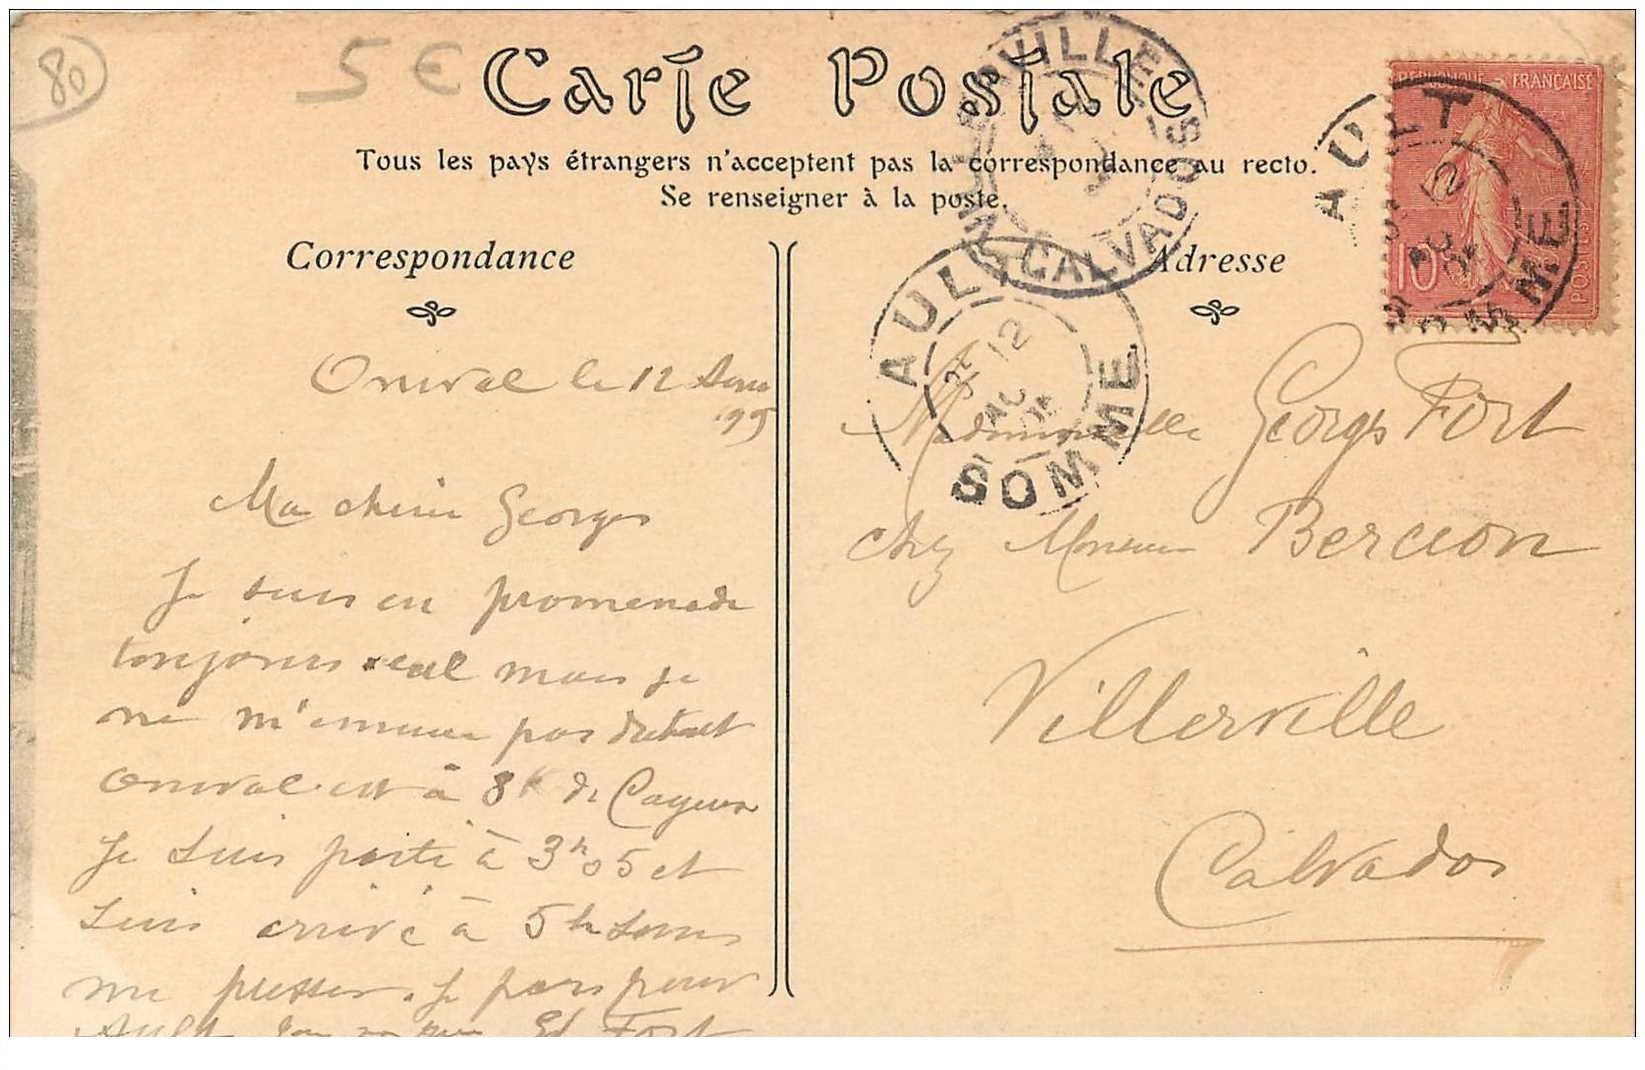 80
5 €
Carte Postale
Tous les pays étrangers n'acceptent pas la correspondance au recto.
Se renseigner à la poste.
Correspondance
Adresse
RÉPUBLIQUE FRANÇAISE
10
POSTES
AULT
12
SOMME
VILLERVILLE
CALVADOS
AULT
12
SOMME
Onival le 12
Ma chérie Georges
Je suis en promenade
toujours seul mais je
ne m'ennuie pas du tout
Onival est à 8k de Cayeux
Je suis parti à 3h05 et
suis arrivé à 5h sans
me presser. Je pars pour
Ault Ed Fort
Mademoiselle Georges Fort
chez Monsieur Bercion
Villerville
Calvados